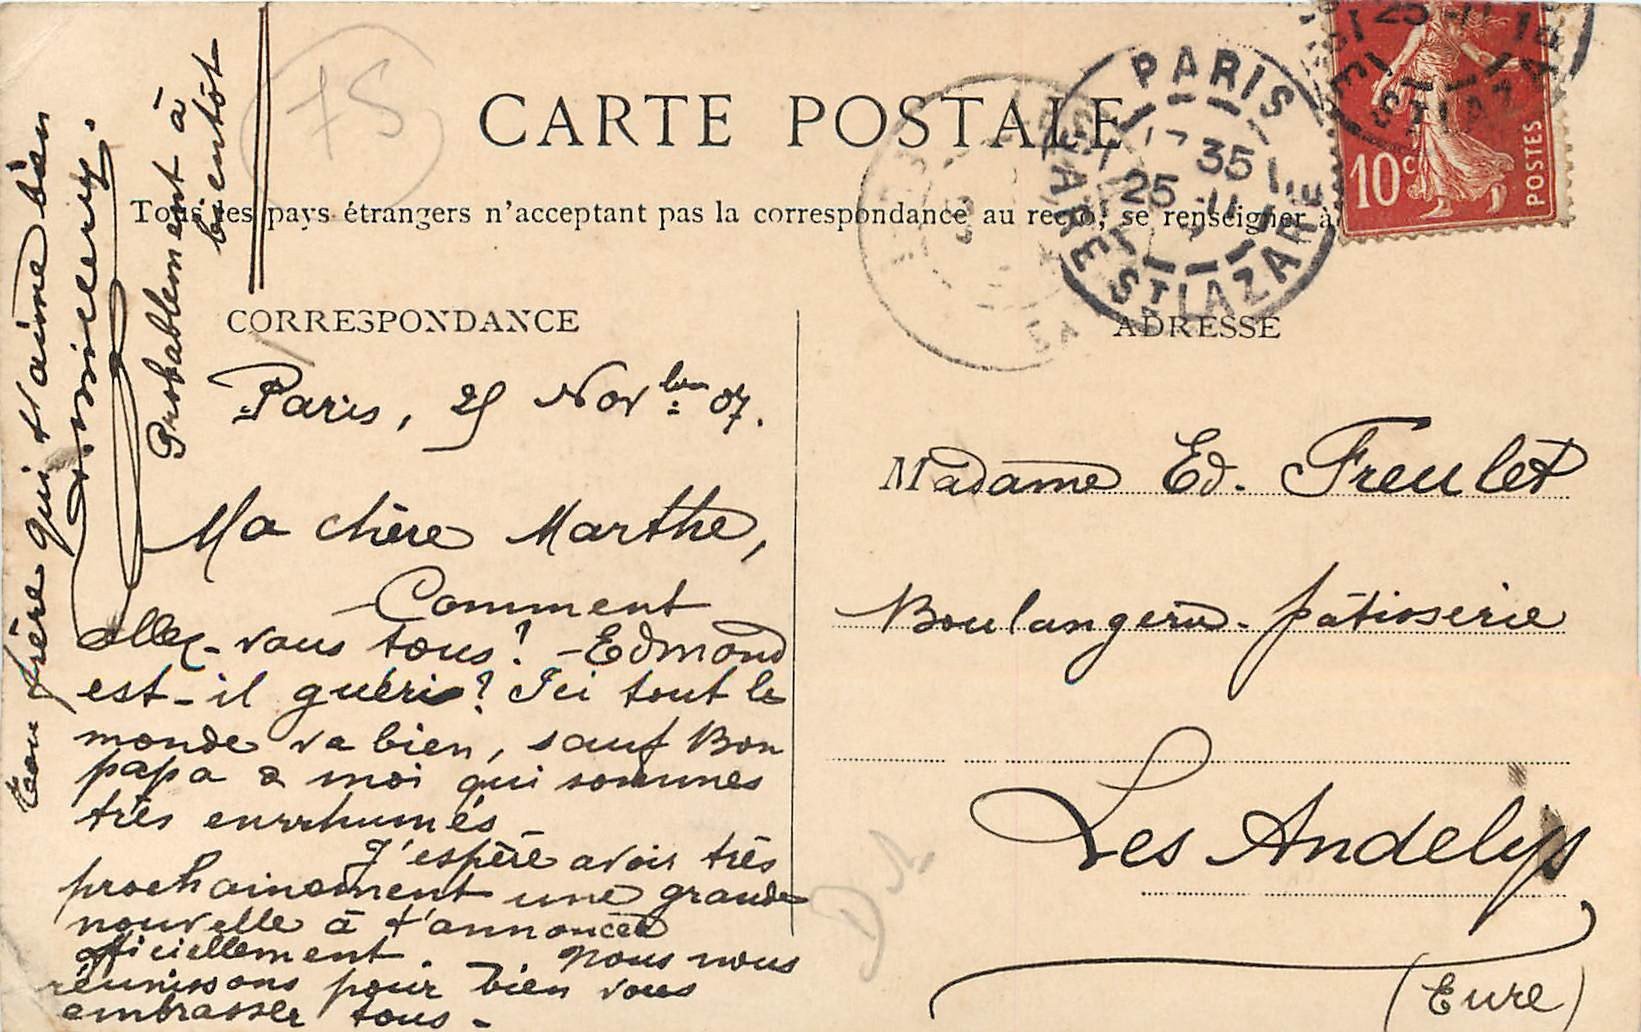 75
CARTE POSTALE
Tous les pays étrangers n'acceptant pas la correspondance au recto, se renseigner à
PARIS
17 35
25 -11
GARE ST LAZARE
25-11
ST LAZA
10c
POSTES
CORRESPONDANCE
ADRESSE
Paris, 25 Novbre 07.
Ma chère Marthe,
Comment
allez-vous tous? - Edmond
est-il guéri? Ici tout le
monde va bien, sauf Bon
papa & moi qui sommes
très enrrhumés
J'espère avoir très
prochainement une grande
nouvelle à t'annoncer
officiellement. Nous nous
réunissons pour bien vous
embrasser tous -
Ton frère qui t'aime bien
Probablement à
bientôt
Madame Ed. Freulet
Boulangerie-pâtisserie
Les Andelys
(Eure)